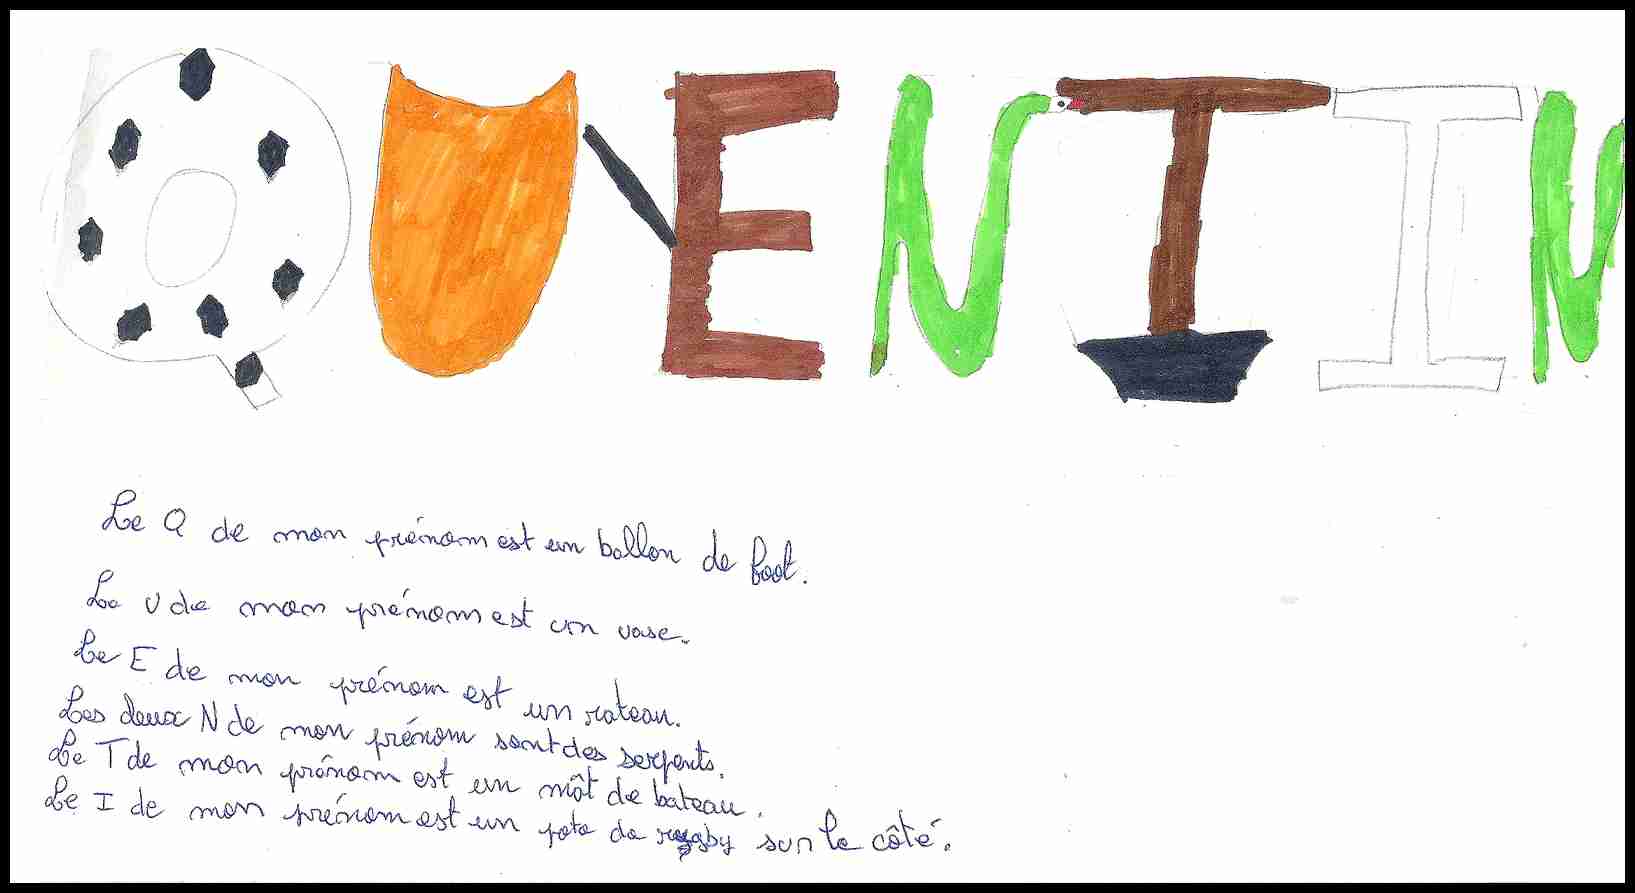 QUENTIN
Le Q de mon prénom est un ballon de foot.
Le U de mon prénom est un vase.
Le E de mon prénom est un rateau.
Les deux N de mon prénom sont des serpents.
Le T de mon prénom est un mât de bateau.
Le I de mon prénom est un poto de rugby sur le côté.